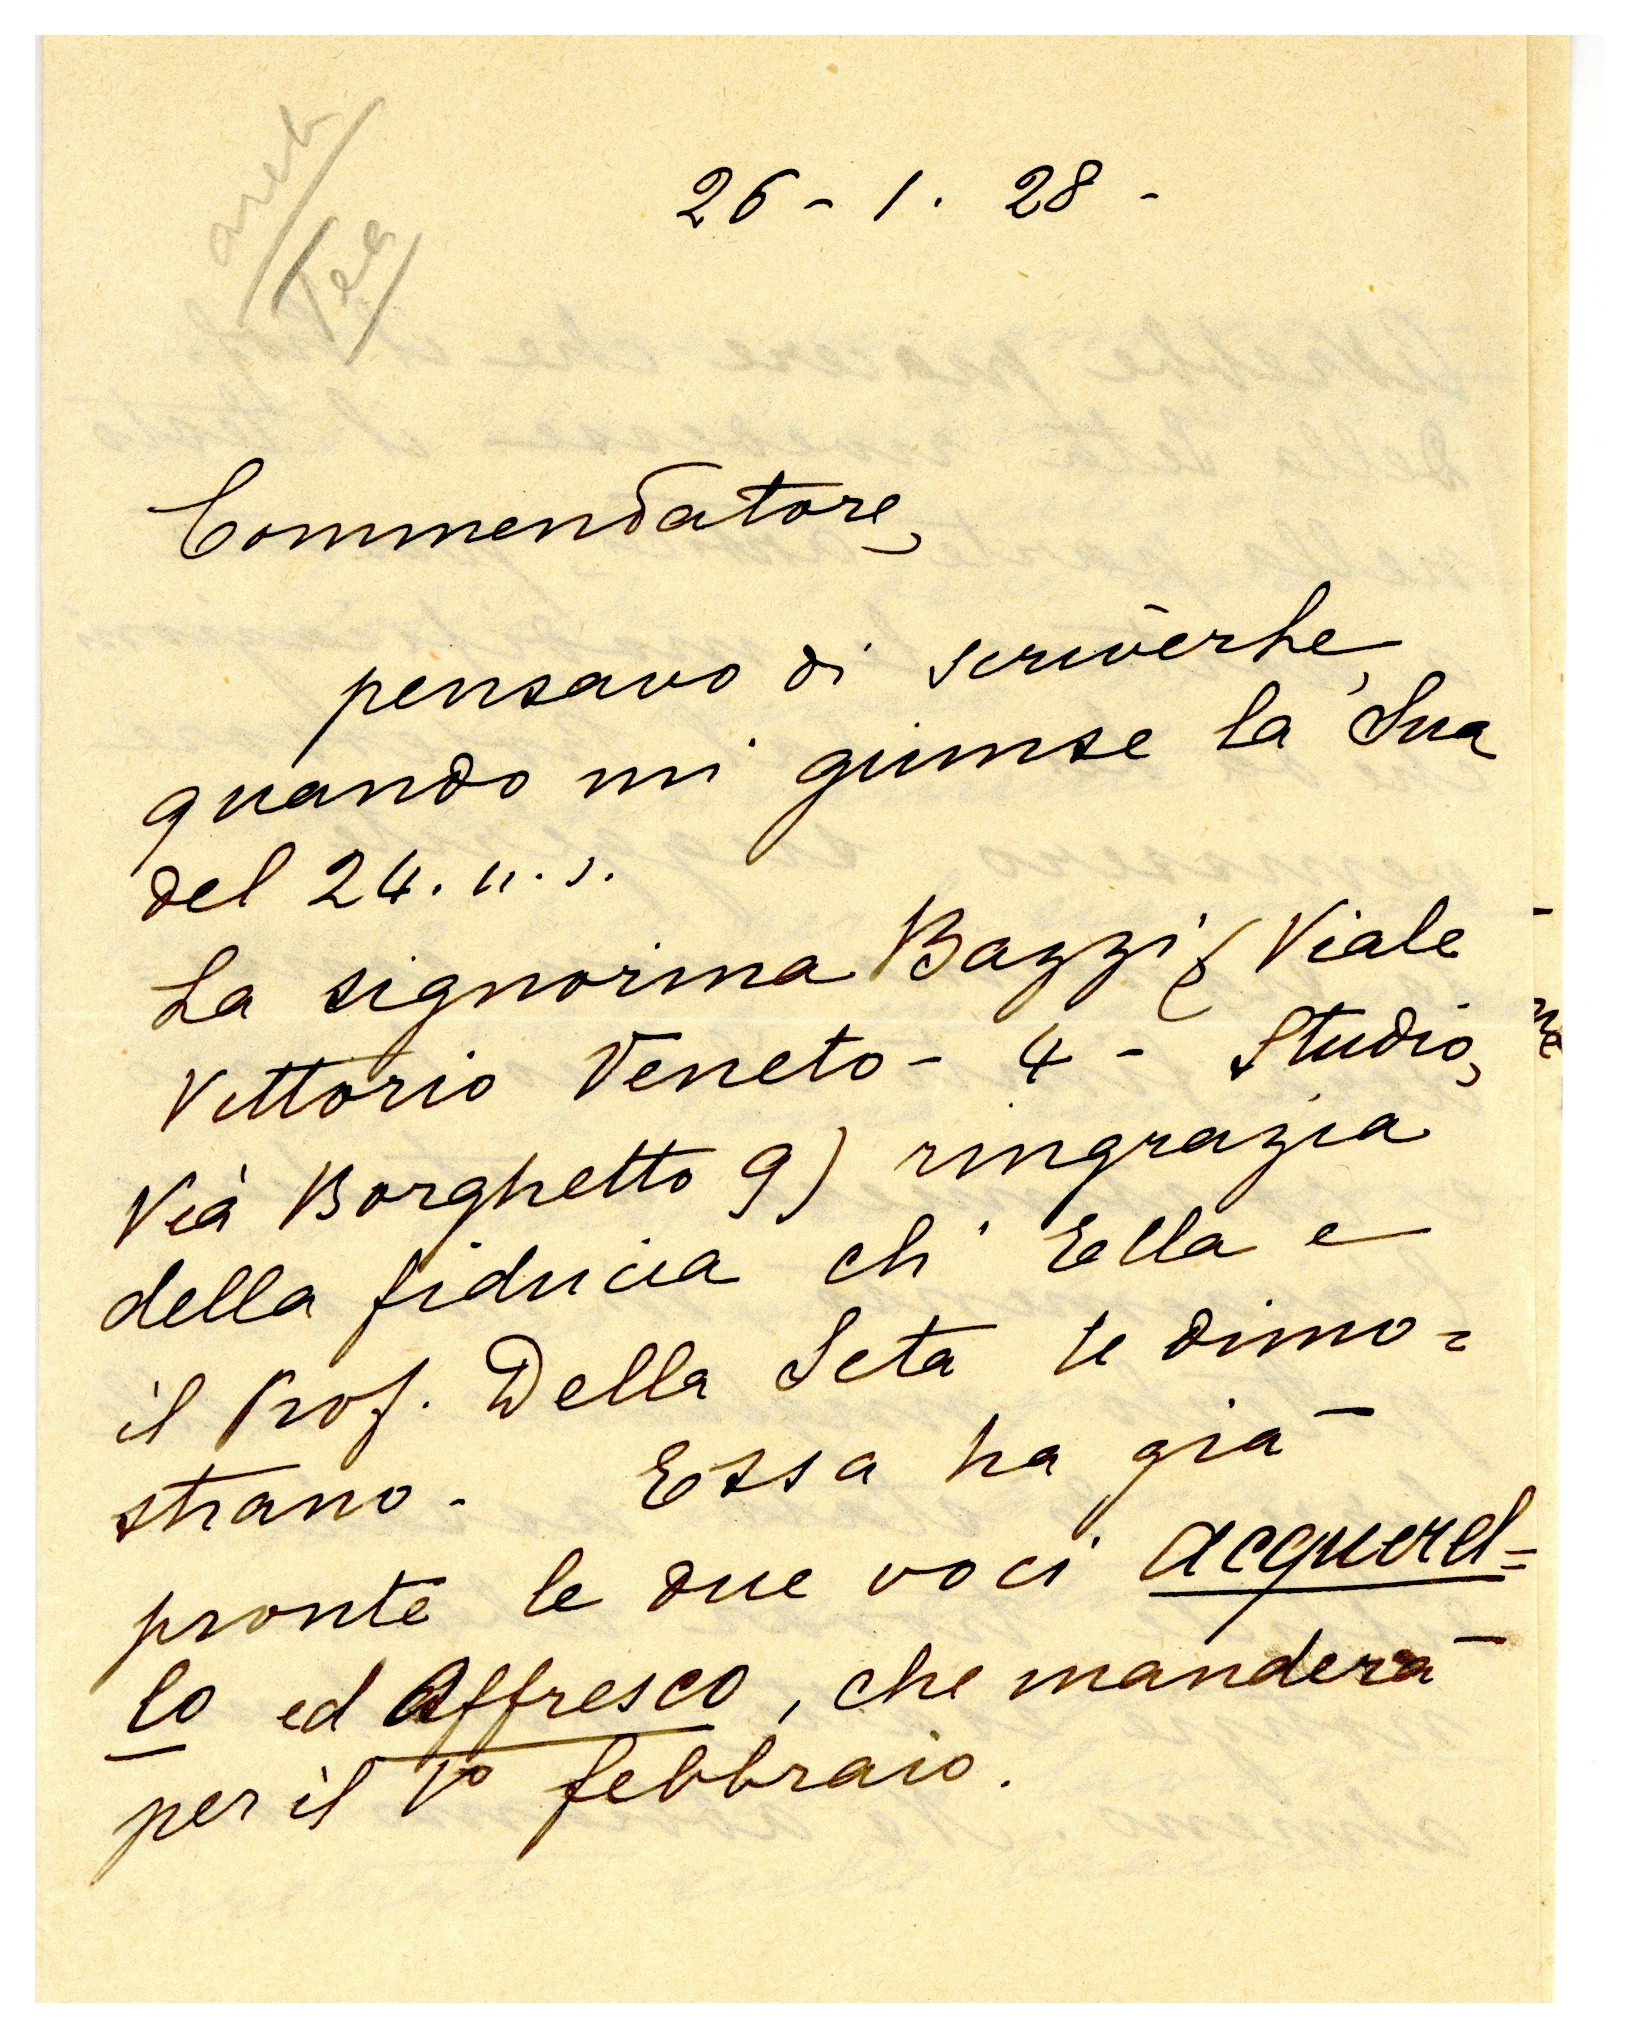 26 - 1. 28 -
Commendatore,
pensavo di scriverLe,
quando mi giunse la Sua
del 24. u. s.
La signorina Bazzi (Viale
Vittorio Veneto - 4 - Studio,
Via Borghetto 9) ringrazia
della fiducia ch' Ella e
il Prof. Della Seta le dimo=
strano. Essa ha già
pronte le due voci acquerel=
lo ed Affresco, che manderà
per il 1º febbraio.